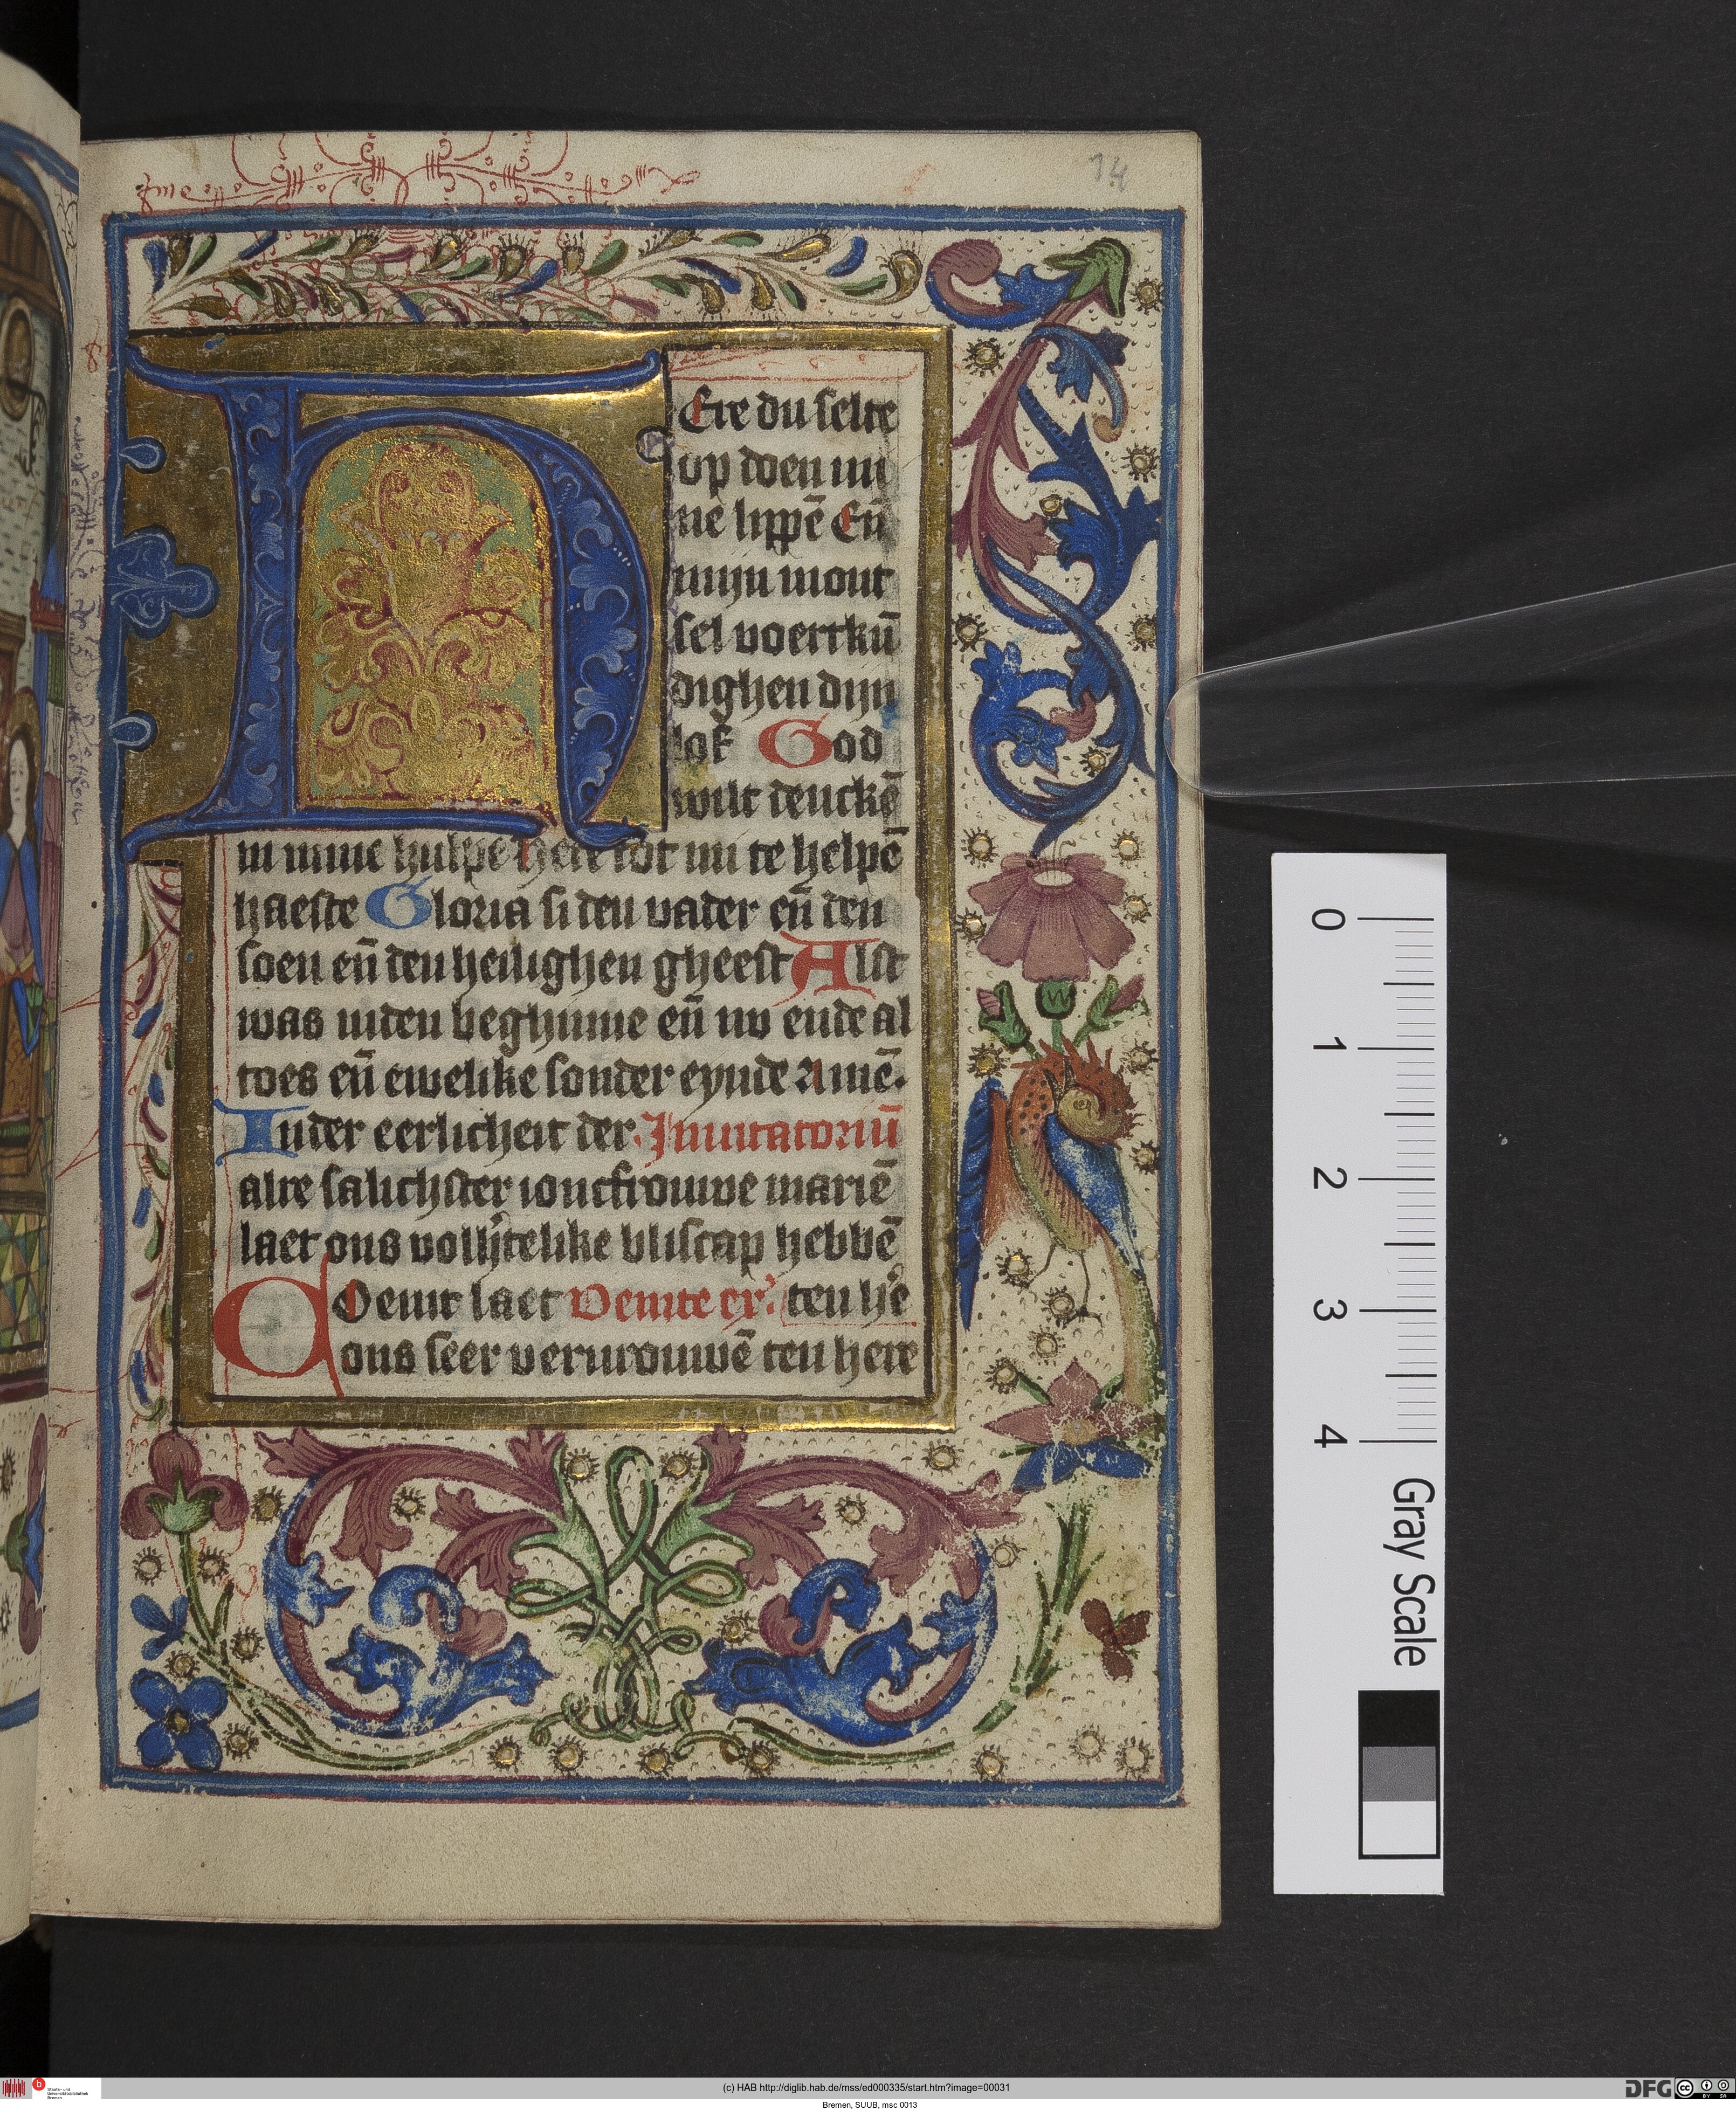 14
HEre du selte
op doen mi
nē lippē En̄
mijn mont
sel voertkū
dighen dijn
lof God
wilt denckē
in mine hulpe here tot mi te helpē
haeste Gloria si den vader en̄ den
soen en̄ den heilighen gheest Alst
was inden beghinne en̄ nv ende al
toes en̄ ewelike sonder eynde Amē.
Inder eerlicheit der Inuitatoriū
alre salichster ioncfrouwe mariē
laet ons vollijtelike bliscap hebbē
Coemt laet Venite ex. ten hr̄e
ons seer vervrouwē ten here
0
1
2
3
4
Gray Scale
(c) HAB http://diglib.hab.de/mss/ed000335/start.htm?image=00031
Bremen, SUUB, msc 0013
Staats- und
Universitätsbibliothek
Bremen
DFG